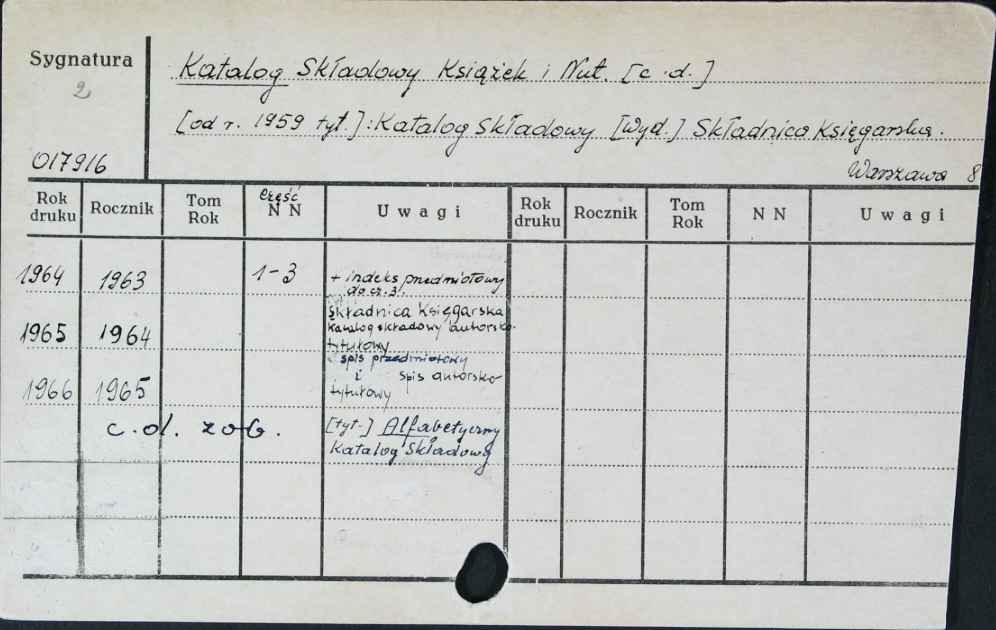 Sygnatura
2
017916
Katalog Składowy Książek i Nut. [c.d.]
[od r. 1959 tyt.]: Katalog Składowy [Wyd.] Składnica Księgarska.
Warszawa 8
Rok druku Rocznik Tom Rok Część N N Uwagi Rok druku Rocznik Tom Rok N N Uwagi
1964 1963 1-3 + indeks przedmiotowy
do cz. 3.
Składnica Księgarska
Katalog składowy autorsko-
1965 1964
tytułowy
i spis przedmiotowy
i spis autorsko
1966 1965 tytułowy
c.d. zob. [tyt.] Alfabetyczny
Katalog Składowy